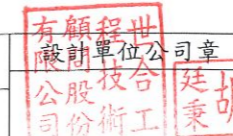 設計單位公司章
世合工
程技術
顧問股份
有限公司
胡
廷秉